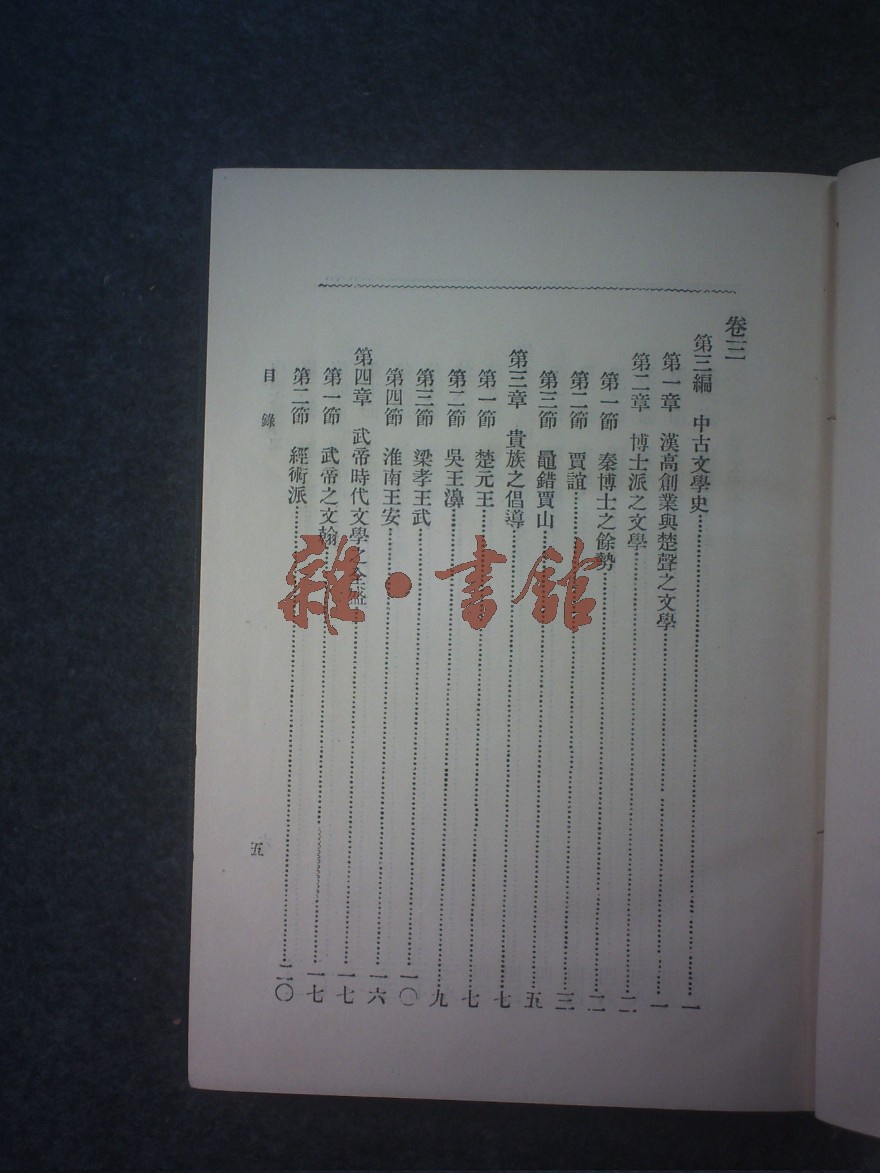 卷三
第三編　中古文學史……一
第一章　漢高創業與楚聲之文學……一
第二章　博士派之文學……二
第一節　秦博士之餘勢……二
第二節　賈誼……三
第三節　鼂錯賈山……五
第三章　貴族之倡導……七
第一節　楚元王……七
第二節　吳王濞……九
第三節　梁孝王武……一〇
第四節　淮南王安……一六
第四章　武帝時代文學之全盛……一七
第一節　武帝之文翰……一七
第二節　經術派……二〇
目錄
五
雜·書館